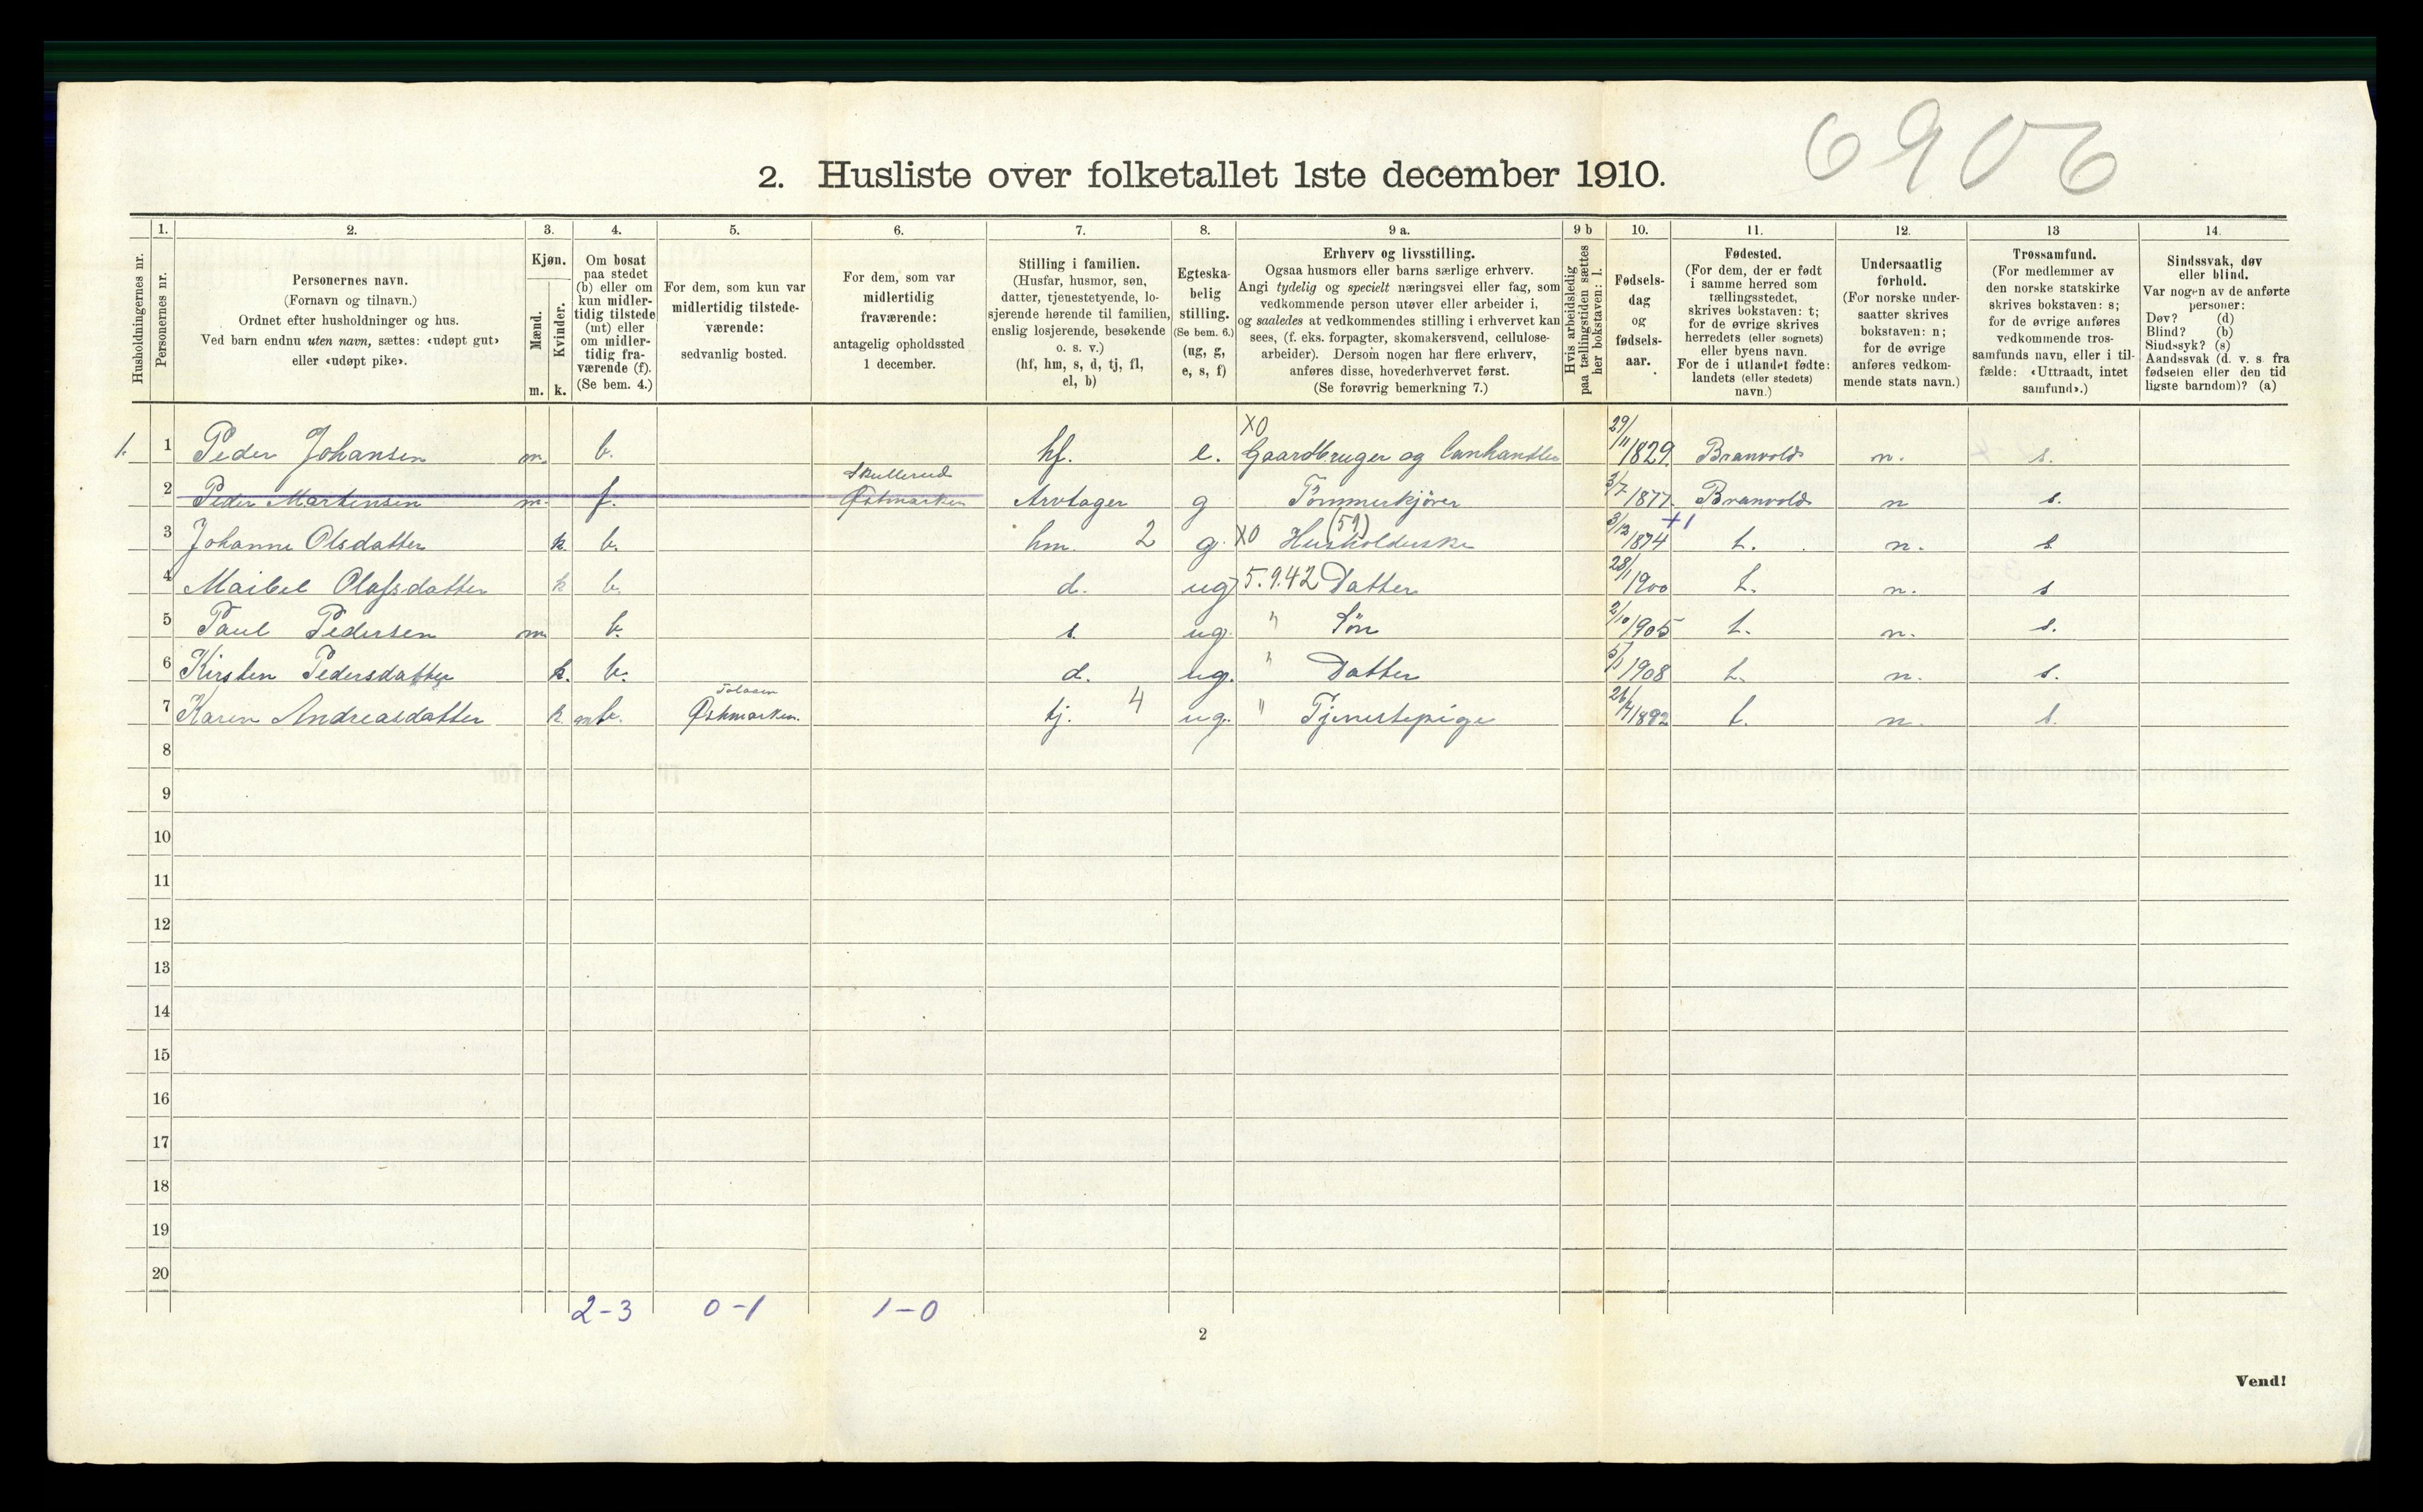 6906
2. Husliste over folketallet 1ste december 1910.
Husholdningernes nr.
1. Personernes nr.
2. Personernes navn. (Fornavn og tilnavn.) Ordnet efter husholdninger og hus. Ved barn endnu uten navn, sættes: «udøpt gut» eller «udøpt pike».
3. Kjøn. Mænd. m. Kvinder. k.
4. Om bosat paa stedet (b) eller om kun midlertidig tilstede (mt) eller om midlertidig fraværende (f). (Se bem. 4.)
5. For dem, som kun var midlertidig tilstedeværende: sedvanlig bosted.
6. For dem, som var midlertidig fraværende: antagelig opholdssted 1 december.
7. Stilling i familien. (Husfar, husmor, søn, datter, tjenestetyende, losjerende hørende til familien, enslig losjerende, besøkende o. s. v.) (hf, hm, s, d, tj, fl, el, b)
8. Egteskabelig stilling. (Se bem. 6.) (ug, g, e, s, f)
9 a. Erhverv og livsstilling. Ogsaa husmors eller barns særlige erhverv. Angi tydelig og specielt næringsvei eller fag, som vedkommende person utøver eller arbeider i, og saaledes at vedkommendes stilling i erhvervet kan sees, (f. eks. forpagter, skomakersvend, cellulosearbeider). Dersom nogen har flere erhverv, anføres disse, hovederhvervet først. (Se forøvrig bemerkning 7.)
9 b Hvis arbeidsledig paa tællingstiden sættes her bokstaven: l.
10. Fødselsdag og fødselsaar.
11. Fødested. (For dem, der er født i samme herred som tællingsstedet, skrives bokstaven: t; for de øvrige skrives herredets (eller sognets) eller byens navn. For de i utlandet fødte: landets (eller stedets) navn.)
12. Undersaatlig forhold. (For norske undersaatter skrives bokstaven: n; for de øvrige anføres vedkommende stats navn.)
13 Trossamfund. (For medlemmer av den norske statskirke skrives bokstaven: s; for de øvrige anføres vedkommende trossamfunds navn, eller i tilfælde: «Uttraadt, intet samfund».)
14. Sindssvak, døv eller blind. Var nogen av de anførte personer: Døv? (d) Blind? (b) Sindssyk? (s) Aandssvak (d. v. s. fra fødselen eller den tidligste barndom)? (a)
1. 1 Peder Johansen m. b. hf. e. X0 Gaardbruger og 29/11 1829 Branvold n. s.
2 Peder Martinsen m. f. Skullerud Østmarken Arvtager g Tømmerkjører 3/7 1877 Branvold n s.
3 Johanne Olsdatter k. b. hm. 2 g. X0 Husholderske (59) 3/12 1874 +1 t. n. s
4 Maibel Olafsdatter k b. d. ug 5.9.42 Datter 28/1 1900 t. n. s
5 Paul Pedersen m b. s. ug. " Søn 2/10 1905 t. n. s.
6 Kirsten Pedersdatter k. b. d. ug. " Datter 1908 t. n. s.
7 Karen Andreasdatter k mt b. Østmarken. tj. 4 ug. " Tjenestepige 26/4 1892 t. n. s.
8
9
10
11
12
13
14
15
16
17
18
19
20
2-3 0-1 1-0
2
Vend!